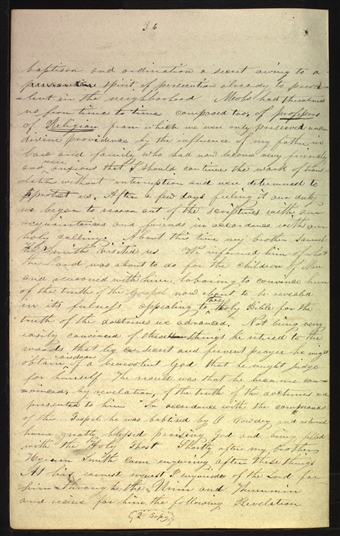 36
baptism and ordination a secret owing to a
spirit of persecution already to prev-
alent in the neighborhood Mobs had threatened
us from time to time composed too, of professors
of Religion from which we were only preserved under
divine providence by the influence of my father in
laws family, who had now become very friendly
and, anxious that I should continue the work of tran-
slation without interruption and were determined to
protect us. After a few days feeling it our duty
we began to reason out of the scriptures with our
acquaintances and friends in accordance with our
holy calling. About this time my brother Samuel
H. Smith visited us We informed him of what
the Lord was about to do for the children of Men
and reasoned with him, laboring to convince him
of the truth of the Gospel now about to be revealed
in its fulness appealing to the Holy Bible for the
truth of the doctrines we advanced, Not being very
easily convinced of these things he retired to the
woods that by secret and fervent prayer he might
obtain wisdom of a benevolent God that he might judge
for himself The result was that he became con-
vinced by revelation, of the truth of the doctrines as
presented to him In accordance with the
of the Gospel he was baptised by O. Cowdery and returned
home greatly blessed praising God and being filled
with the Holy Ghost Shortly after my brother
Hyrum Smith came enquiring after these things
At his earnest request I enquired of the Lord for
him through the Urim and Thummim
and received for him the following Revelation